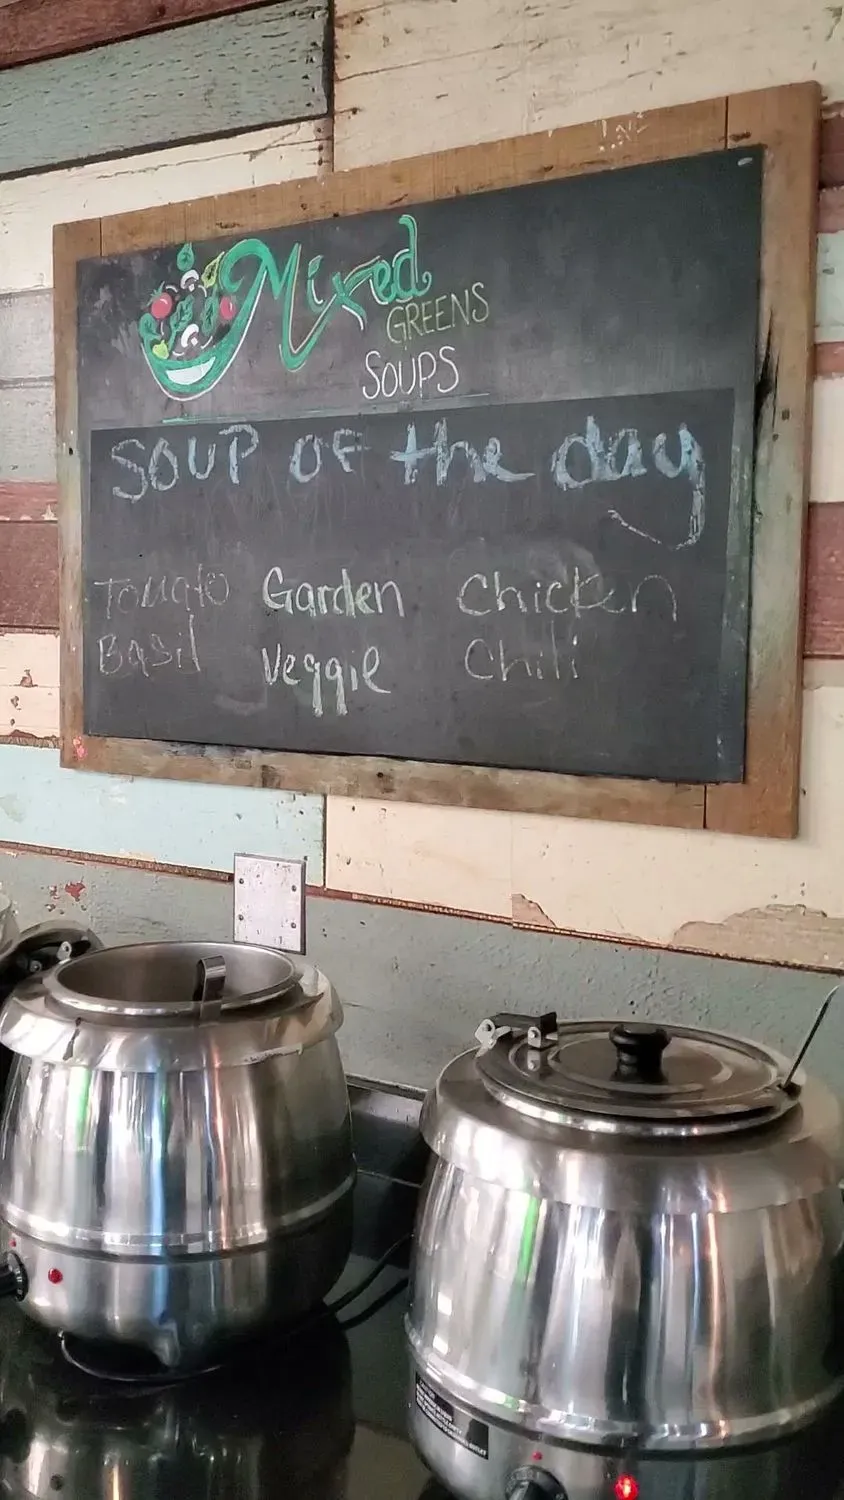 Mixed
GREENS
SOUPS
SOUP OF the day
Tomato Garden Chicken
Basil Veggie Chili